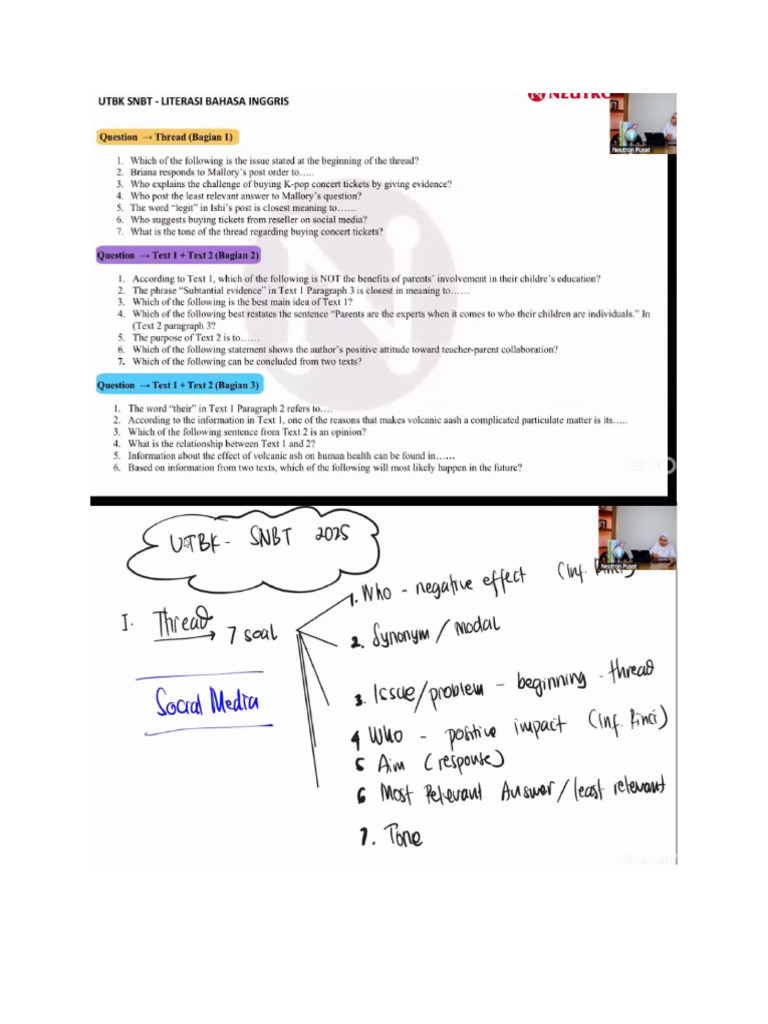 UTBK SNBT - LITERASI BAHASA INGGRIS
NEUTRO
Neutron Pusat
Question → Thread (Bagian 1)
1. Which of the following is the issue stated at the beginning of the thread?
2. Briana responds to Mallory's post order to…..
3. Who explains the challenge of buying K-pop concert tickets by giving evidence?
4. Who post the least relevant answer to Mallory's question?
5. The word "legit" in Ishi's post is closest meaning to……
6. Who suggests buying tickets from reseller on social media?
7. What is the tone of the thread regarding buying concert tickets?
Question → Text 1 + Text 2 (Bagian 2)
1. According to Text 1, which of the following is NOT the benefits of parents' involvement in their childre's education?
2. The phrase "Subtantial evidence" in Text 1 Paragraph 3 is closest in meaning to……
3. Which of the following is the best main idea of Text 1?
4. Which of the following best restates the sentence "Parents are the experts when it comes to who their children are individuals." In
(Text 2 paragraph 3?
5. The purpose of Text 2 is to……
6. Which of the following statement shows the author's positive attitude toward teacher-parent collaboration?
7. Which of the following can be concluded from two texts?
Question → Text 1 + Text 2 (Bagian 3)
1. The word "their" in Text 1 Paragraph 2 refers to….
2. According to the information in Text 1, one of the reasons that makes volcanic aash a complicated particulate matter is its…..
3. Which of the following sentence from Text 2 is an opinion?
4. What is the relationship between Text 1 and 2?
5. Information about the effect of volcanic ash on human health can be found in……
6. Based on information from two texts, which of the following will most likely happen in the future?
UTBK - SNBT 2025
Neutron Pusat
I. Thread → 7 soal
Social Media
1. Who - negative effect (Inf. Rinci)
2. Synonym / Modal
3. Issue/problem - beginning - thread
4 Who - positive impact (Inf. Rinci)
5 Aim (response)
6 Most Relevant Answer / least relevant
7. Tone